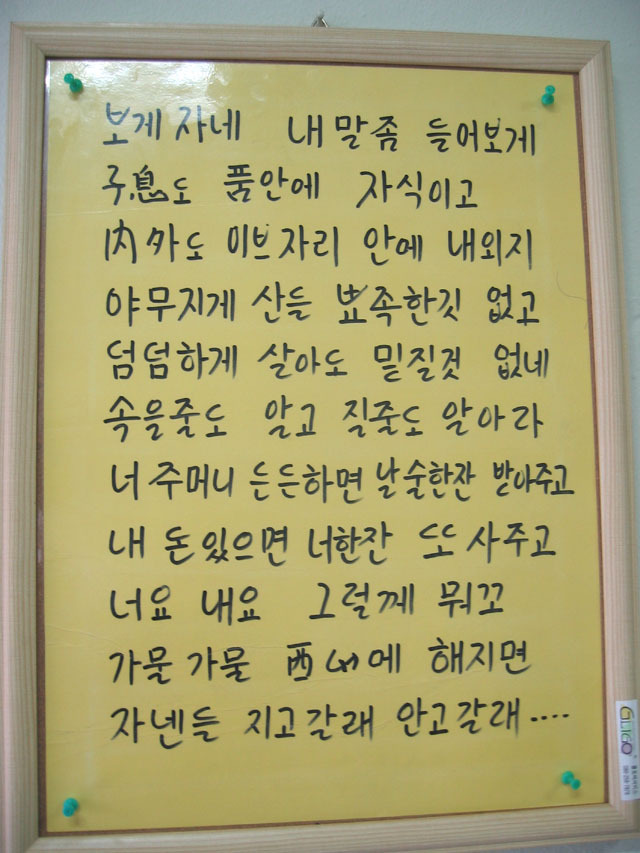 보게 자네 내 말좀 들어보게
子息도 품안에 자식이고
內外도 이브자리 안에 내외지
야무지게 산들 뾰족한깃 없고
덤덤하게 살아도 밑질것 없네
속을줄도 알고 질줄도 알아라
너 주머니 든든하면 날 술한잔 받아주고
내 돈 있으면 너한잔 또 사주고
너요 내요 그럴께 뭐꼬
가물 가물 西山에 해지면
자넨들 지고갈래 안고갈래....
GLIGO